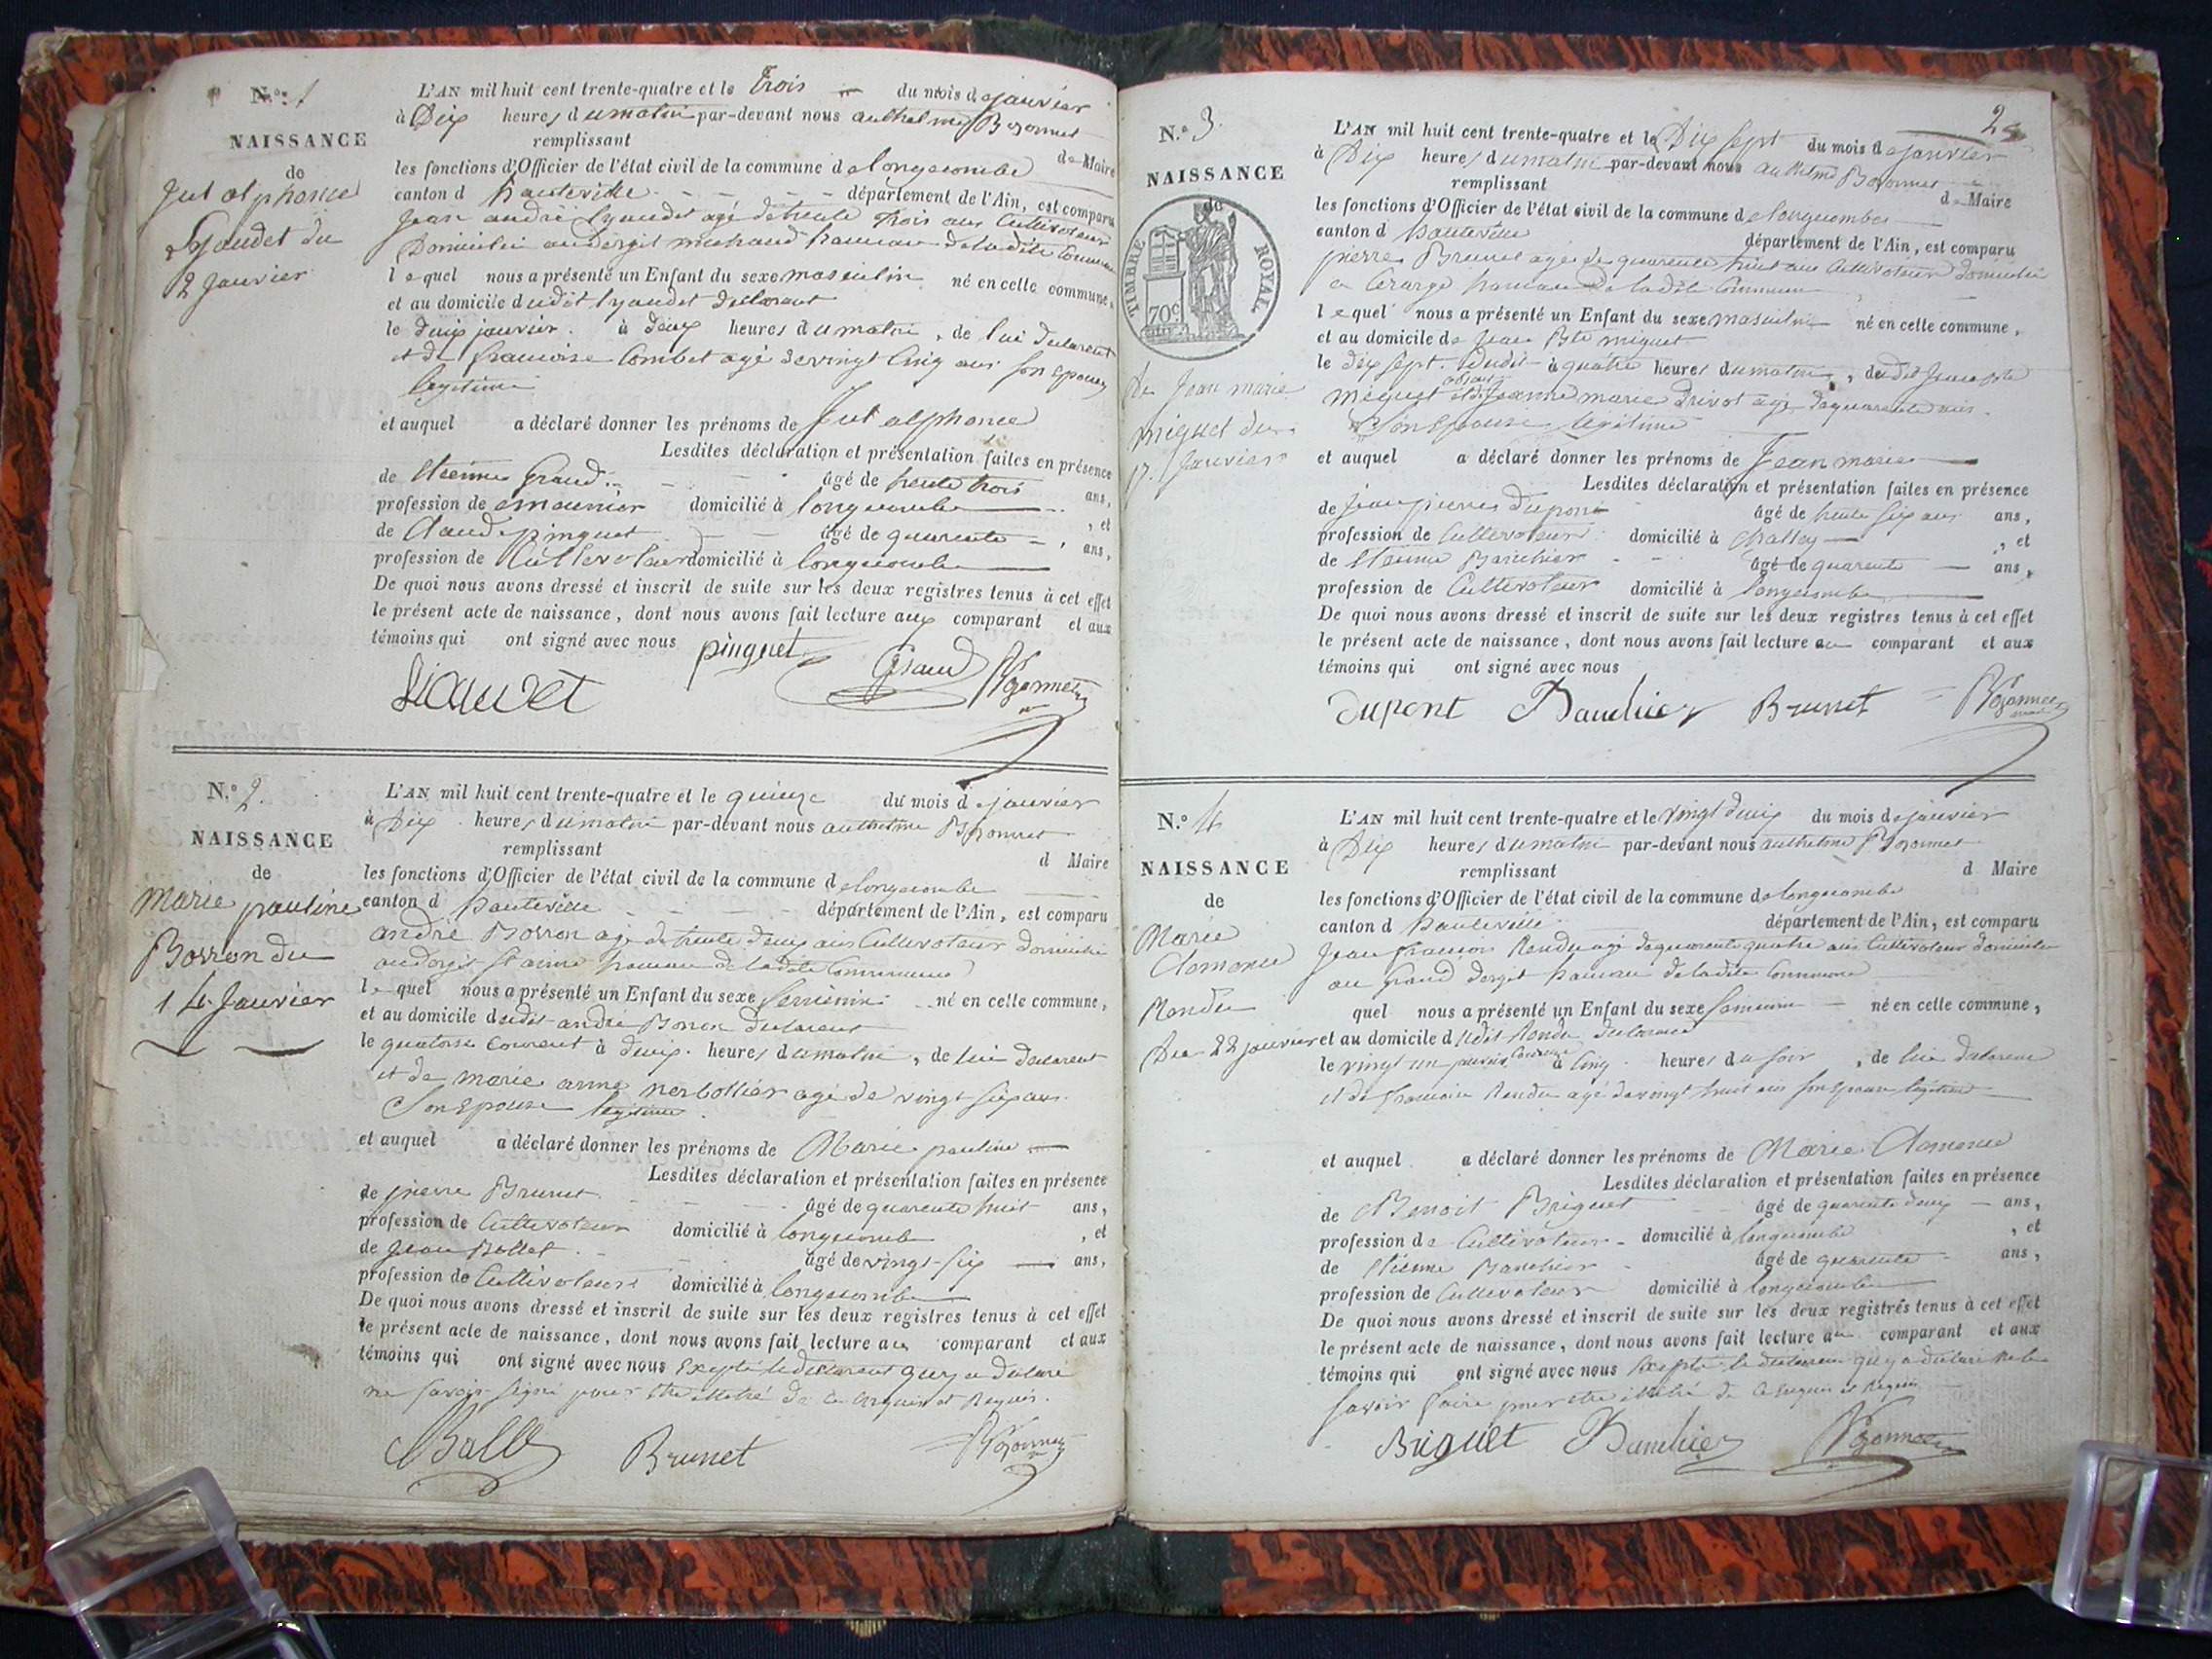 N.º 1
NAISSANCE
de
Jul alphonce
Lyaudet du
2 Janvier
L'AN mil huit cent trente-quatre et le Trois du mois de janvier
à Dix heures du matin par-devant nous authelme Bozonnet
remplissant de Maire
les fonctions d'Officier de l'état civil de la commune de longecombe
canton d hauteville département de l'Ain, est comparu
Jean andré Lyaudet agé de trente trois ans Cultivateur
Domicilié au dergit michaud hameau de la dite Commune
lequel nous a présenté un Enfant du sexe masculin né en cette commune,
et au domicile dudit lyaudet declarant
le deux janvier à deux heures du matin, de lui declarent
et de francoise Combet agé de vingt Cinq ans son epouse
legitime
et auquel a déclaré donner les prénoms de Jul alphonce
Lesdites déclaration et présentation faites en présence
de Etienne Graud âgé de trente trois ans,
profession de meunier domicilié à longecombe , et
de Claude pinguet âgé de quarente ans,
profession de Cultivateur domicilié à longecombe
De quoi nous avons dressé et inscrit de suite sur les deux registres tenus à cet effet
le présent acte de naissance, dont nous avons fait lecture aux comparant et aux
témoins qui ont signé avec nous
pinguet
Liaudet Graud Bozonnet
N.º 2.
NAISSANCE
de
Marie pauline
Borron du
14 Janvier
L'AN mil huit cent trente-quatre et le quinze du mois de janvier
à Dix heures du matin par-devant nous authelme Bozonnet
remplissant d Maire
les fonctions d'Officier de l'état civil de la commune de longecombe
canton d hauteville département de l'Ain, est comparu
andré Borron agé de trente deux ans Cultivateur domicilié
au dergit St anne hameau de la dite Commune
lequel nous a présenté un Enfant du sexe feminin né en cette commune,
et au domicile dudit andré Borron declarent
le quatorse courent à deux heures du matin, de lui declarent
et de marie anne agé de vingt six ans
Son epouse legitime
et auquel a déclaré donner les prénoms de Marie pauline
Lesdites déclaration et présentation faites en présence
de pierre Brunet âgé de quarente huit ans,
profession de Cultivateur domicilié à longecombe , et
de Jean Ballet âgé de vingt-six ans,
profession de Cultivateur domicilié à longecombe
De quoi nous avons dressé et inscrit de suite sur les deux registres tenus à cet effet
le présent acte de naissance, dont nous avons fait lecture au comparant et aux
témoins qui ont signé avec nous Excepté le declarent quy a declaré
ne savoir signé pour être illetré de ce enquis et Requis.
Ballet Brunet Bozonnet
2
N.º 3.
NAISSANCE
de
TIMBRE ROYAL
70c
De Jean marie
miguet du
17. Janvier
L'AN mil huit cent trente-quatre et le Dix Sept du mois de janvier
à Dix heures du matin par-devant nous authelme Bozonnet
remplissant de Maire
les fonctions d'Officier de l'état civil de la commune de longecombe
canton d hauteville département de l'Ain, est comparu
pierre Brunet agé de quarente huit ans Cultivateur domicilié
a hameau de la dite Commune
lequel nous a présenté un Enfant du sexe masculin né en cette commune,
et au domicile de Jean Bte miguet
le dix sept dudit à quatre heures du matin, dudit Jean Bte
miguet absent et de Jeanne marie Drivot agé de quarente ans
Son Epouse legitime
et auquel a déclaré donner les prénoms de Jean marie
Lesdites déclaration et présentation faites en présence
de Jean pierre Dupont âgé de trente six ans ans,
profession de Cultivateur domicilié à Challey , et
de Etienne Banchier âgé de quarente ans,
profession de Cultivateur domicilié à longecombe
De quoi nous avons dressé et inscrit de suite sur les deux registres tenus à cet effet
le présent acte de naissance, dont nous avons fait lecture au comparant et aux
témoins qui ont signé avec nous
Dupont Banchier Brunet Bozonnet
N.º 4
NAISSANCE
de
Marie
Clemence
Rendu
Du 22 janvier
L'AN mil huit cent trente-quatre et le vingt deux du mois de janvier
à Dix heures du matin par-devant nous authelme Bozonnet
remplissant d Maire
les fonctions d'Officier de l'état civil de la commune de longecombe
canton d hauteville département de l'Ain, est comparu
Jean francois Rendu agé de quarente quatre ans Cultivateur domicilié
au Grand dergit hameau de la dite Commune
quel nous a présenté un Enfant du sexe feminin né en cette commune,
et au domicile dudit Rendu declarent
le vingt un courent à Cinq heures du soir, de lui declarent
et de francoise Rendu agé de vingt huit ans son epouse legitime
et auquel a déclaré donner les prénoms de Marie Clemence
Lesdites déclaration et présentation faites en présence
de Benoit Briguet âgé de quarente deux ans,
profession de Cultivateur domicilié à longecombe , et
de Etienne Banchier âgé de quarente ans,
profession de Cultivateur domicilié à longecombe
De quoi nous avons dressé et inscrit de suite sur les deux registres tenus à cet effet
le présent acte de naissance, dont nous avons fait lecture au comparant et aux
témoins qui ont signé avec nous Excepté le declarent quy a declaré ne le
savoir faire pour etre illetré de ce enquis et Requis
Briguet Banchier Bozonnet